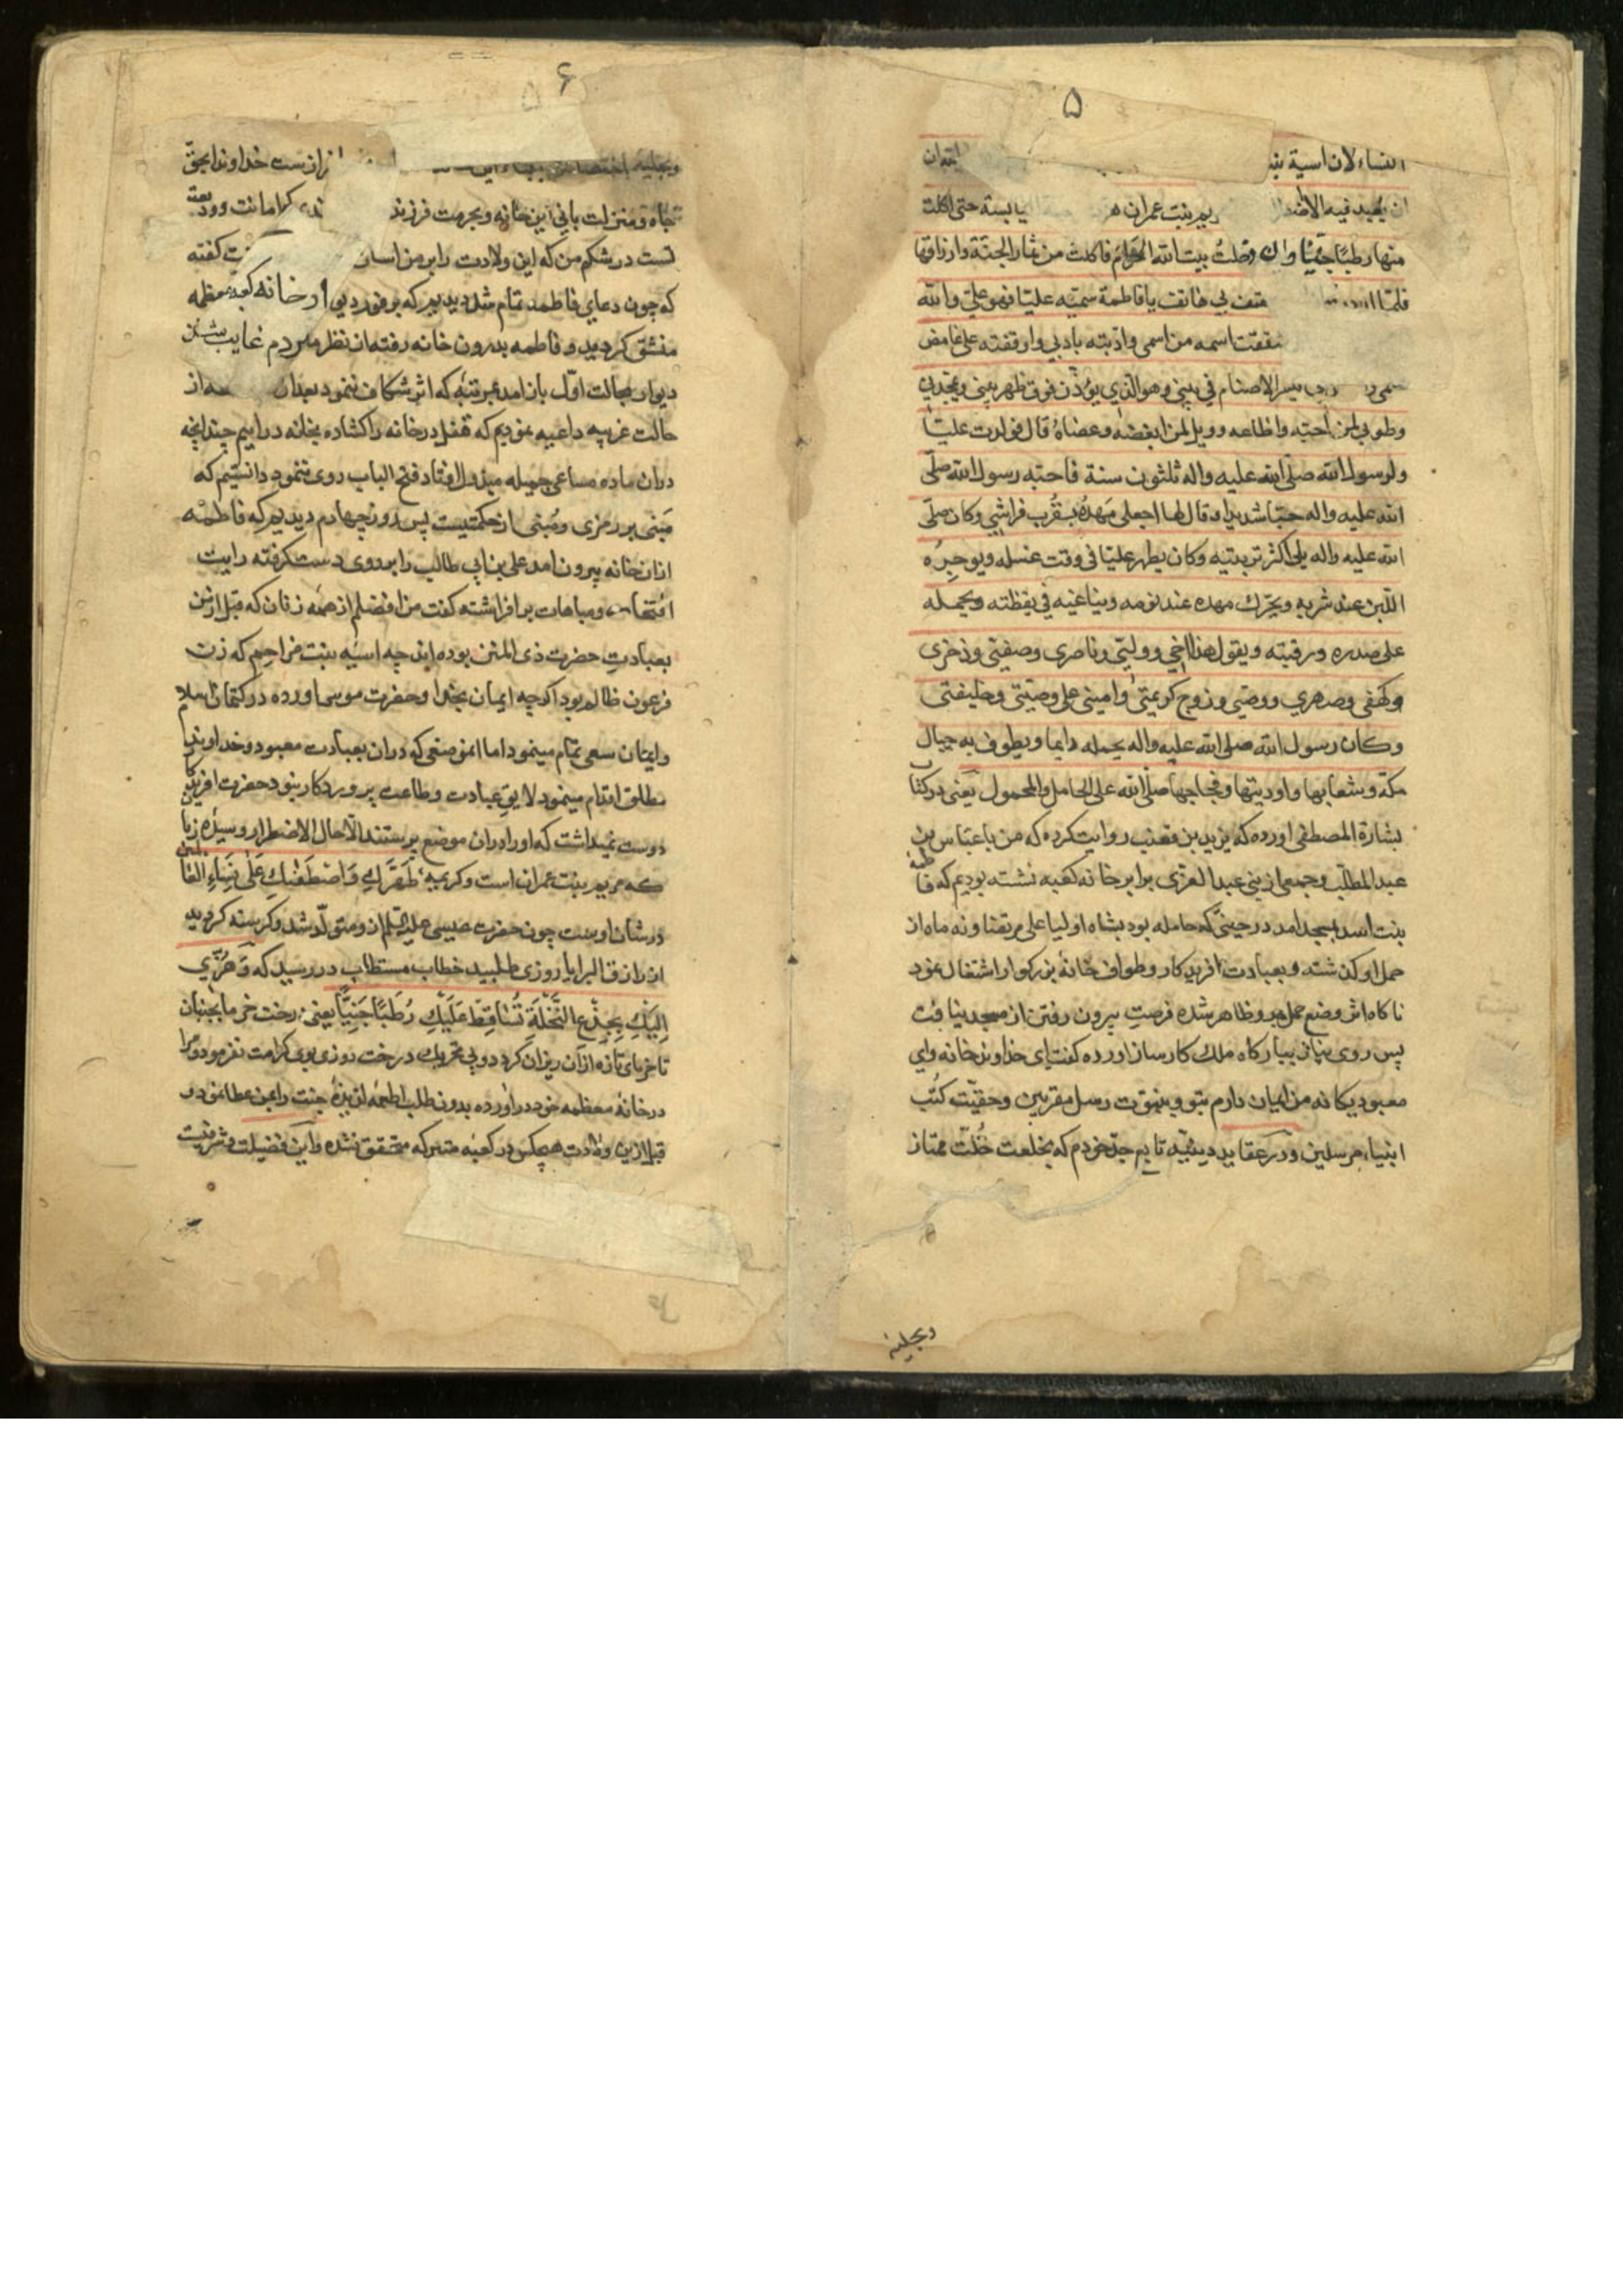 ۵
النساء لان اسیة بنـ
ان یعبد فیه الا اضـ ریم بنت عمران هـ یابسة حتی اکلت
منها رطبا جنیا وانی دخلت بیت الله الحرام فاکلت من ثمار الجنة وارزاقها
فلما هتف بی هاتف یا فاطمة سمیه علیا فهو علی والله
شققت اسمه من اسمی وادبته بادبی واوقفته علی غامض
یکسر الاصنام فی بیتی وهو الذی یؤذن فوق ظهر بیتی ویمجدنی
وطوبی لمن احبه واطاعه وویل لمن ابغضه وعصاه قال فولدت علیا
ولرسول الله صلی الله علیه واله ثلثون سنة فاحبه رسول الله صلی
الله علیه واله حبا شدیدا وقال لها اجعلی مهده بقرب فراشی وکان صلی
الله علیه واله یلی اکثر تربیته وکان یطهر علیا فی وقت غسله ویوجره
اللبن عند شربه ویحرک مهده عند نومه ویناغیه فی یقظته ویحمله
علی صدره ورقبته ویقول هذا اخی وولیی وناصری وصفیی وذخری
وکهفی وصهری ووصیی وزوج کریمتی وامینی علی وصیتی وخلیفتی
وکان رسول الله صلی الله علیه واله یحمله دایما ویطوف به جبال
مکة وشعابها واودیتها وفجاجها صلی الله علی الحامل والمحمول یعنی در کتاب
بشارة المصطفی اورده که یزید بن قعنب روایت کرده که من با عباس بن
عبد المطلب وجمعی از بنی عبد العزی برابر خانه کعبه نشسته بودیم که فاطمه
بنت اسد بمسجد امد در حینی که حامله بود بشاه اولیا علی مرتضا ونه ماه از
حمل او کذشته وبعبادت افریدکار وطواف خانۀ بزرکوار اشتغال نمود
ناکاه اثر وضع حمل برو ظاهر شده فرصت بیرون رفتن از مسجد نیافت
پس روی نیاز ببارکاه ملک کارساز اورده کفت ای خداوند خانه وای
معبود یکانه من ایمان دارم بتو وبنبوت رسل مقربین وحقیت کتب
انبیاء مرسلین ودر عقاید دینیه تابع جد خودم که بخلعت خلت ممتاز
وبحلیه
۶
وبحلیه اختصاص ببناء این از ازست خداوندا بحق
جاه ومنزلت بانی این خانه وبحرمت فرزند کرامانت وودیعۀ
تست در شکم من که این ولادت را بر من اسان کفته
که چون دعای فاطمه تمام شد دیدیم که بر فور دیوار خانه کعبه معظمه
منشق کردید وفاطمه بدرون خانه رفته از نظر مردم غایب شد
دیوار بحالت اول باز امد بمرتبۀ که اثر شکاف ننمود بعد از
حالت غریبه داعیه نمودیم که قفل در خانه را کشاده بخانه در اییم چندانچه
در ان ماده مساعی جمیله مبذول افتاد فتح الباب روی ننمود دانستیم که
مبنی بر رمزی ومبنی از حکمتیست پس روز چهارم دیدیم که فاطمه
از ان خانه بیرون امد علی بن ابی طالب را بر روی دست کرفته رایت
افتخار ومباهات بر افراشته کفت من افضلم از همه زنان که قبل از من
بعبادت حضرت ذی المنن بوده اند چه اسیه بنت مزاحم که زن
فرعون ظالم بود اکرچه ایمان بخدا وحضرت موسی اورده در کتمان اسلام
وایمان سعی تمام مینمود اما در موضعی که در ان بعبادت معبود وخداوند
مطلق اقدام مینمود لایق عبادت وطاعت پروردکار نبود حضرت افریدکار
دوست نمیداشت که او را در ان موضع پرستند الا حال الاضطرار وسیده زنان
که مریم بنت عمران است وکریمه طهرک واصطفیک علی نساء العالمین
در شان اوست چون حضرت عیسی علیه السلم از ومتولد شد وکرسنه کردید
از رازق البرایا روزی طلبید خطاب مستطاب در رسید که وهزی
الیک بجذع النخلة تساقط علیک رطبا جنیا یعنی درخت خرما بجنبان
تا خرمای تازه از ان ریزان کردد وبی تحریک درخت روزی بوی کرامت نفرمود ومرا
در خانۀ معظمه خود در اورده بدون طلب اطعمه لذیذۀ جنت را بمن عطا نمود و
قبل ازین ولادت هیچکس در کعبه متبرکه متحقق نشده واین فضیلت وشرفیت